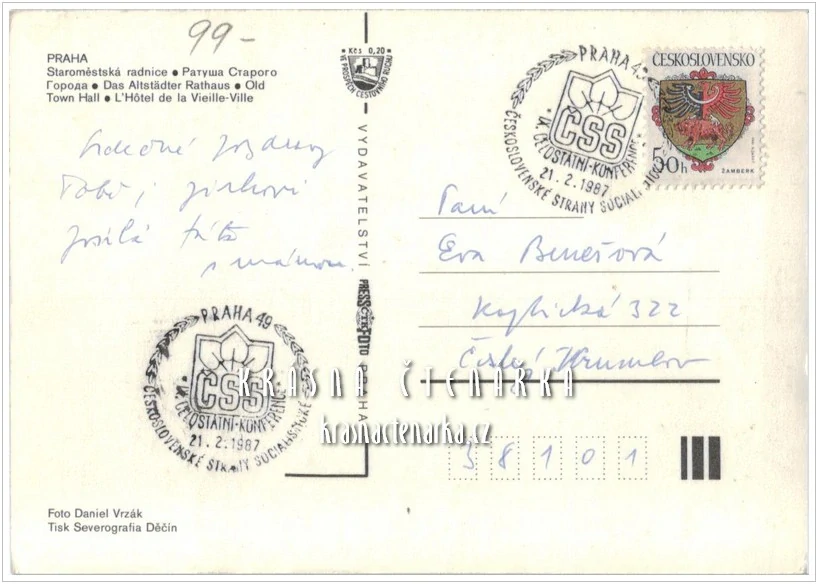 99-
PRAHA
Staroměstská radnice ● Ратуша Старого
Города ● Das Altstädter Rathaus ● Old
Town Hall ● L'Hôtel de la Vieille-Ville
Kčs 0,20
VE PROSPĚCH CESTOVNÍHO RUCHU
PRAHA 49
ČSS
IX. CELOSTÁTNÍ KONFERENCE
21.2.1987
ČESKOSLOVENSKÉ STRANY SOCIALISTICKÉ
ČESKOSLOVENSKO
50h
ŽAMBERK
Srdečné pozdravy
Tobě i Jirkovi
posílá táta
s mámou.
VYDAVATELSTVÍ PRESSFOTO PRAHA
Paní
Eva Benešová
Kaplická 322
Český Krumlov
38101
PRAHA 49
ČSS
IX. CELOSTÁTNÍ KONFERENCE
21.2.1987
ČESKOSLOVENSKÉ STRANY SOCIALISTICKÉ
KRÁSNÁ ČTENÁŘKA
krasnactenarka.cz
Foto Daniel Vrzák
Tisk Severografia Děčín